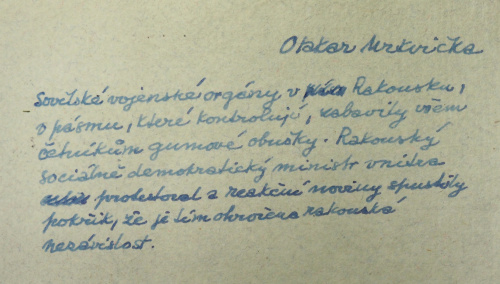 Otakar Mrkvička
Sovětské vojenské orgány v Rakousku,
v pásmu, které kontrolují, zabavily všem
četníkům gumové obušky. Rakouský
sociálně demokratický ministr vnitra
protestoval a reakční noviny spustily
pokřik, že je tím ohrožena rakouská
nezávislost.